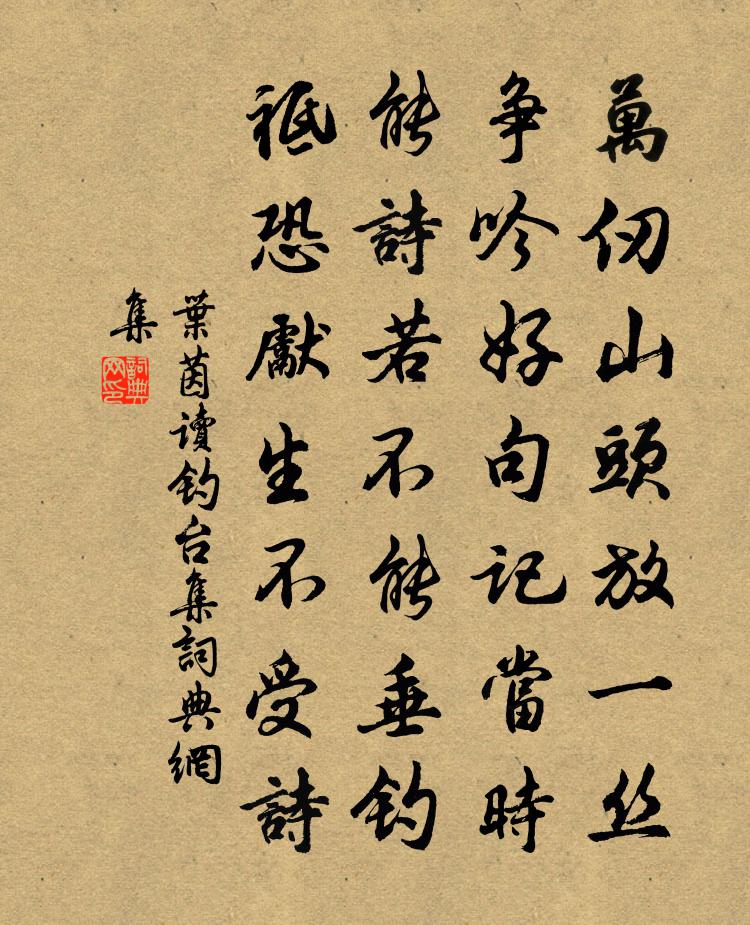 萬仞山頭放一丝
争吟好句記當時
能詩若不能垂钓
祗恐獻生不受詩
葉茵读钓台集詞典網
集
詞典
网印